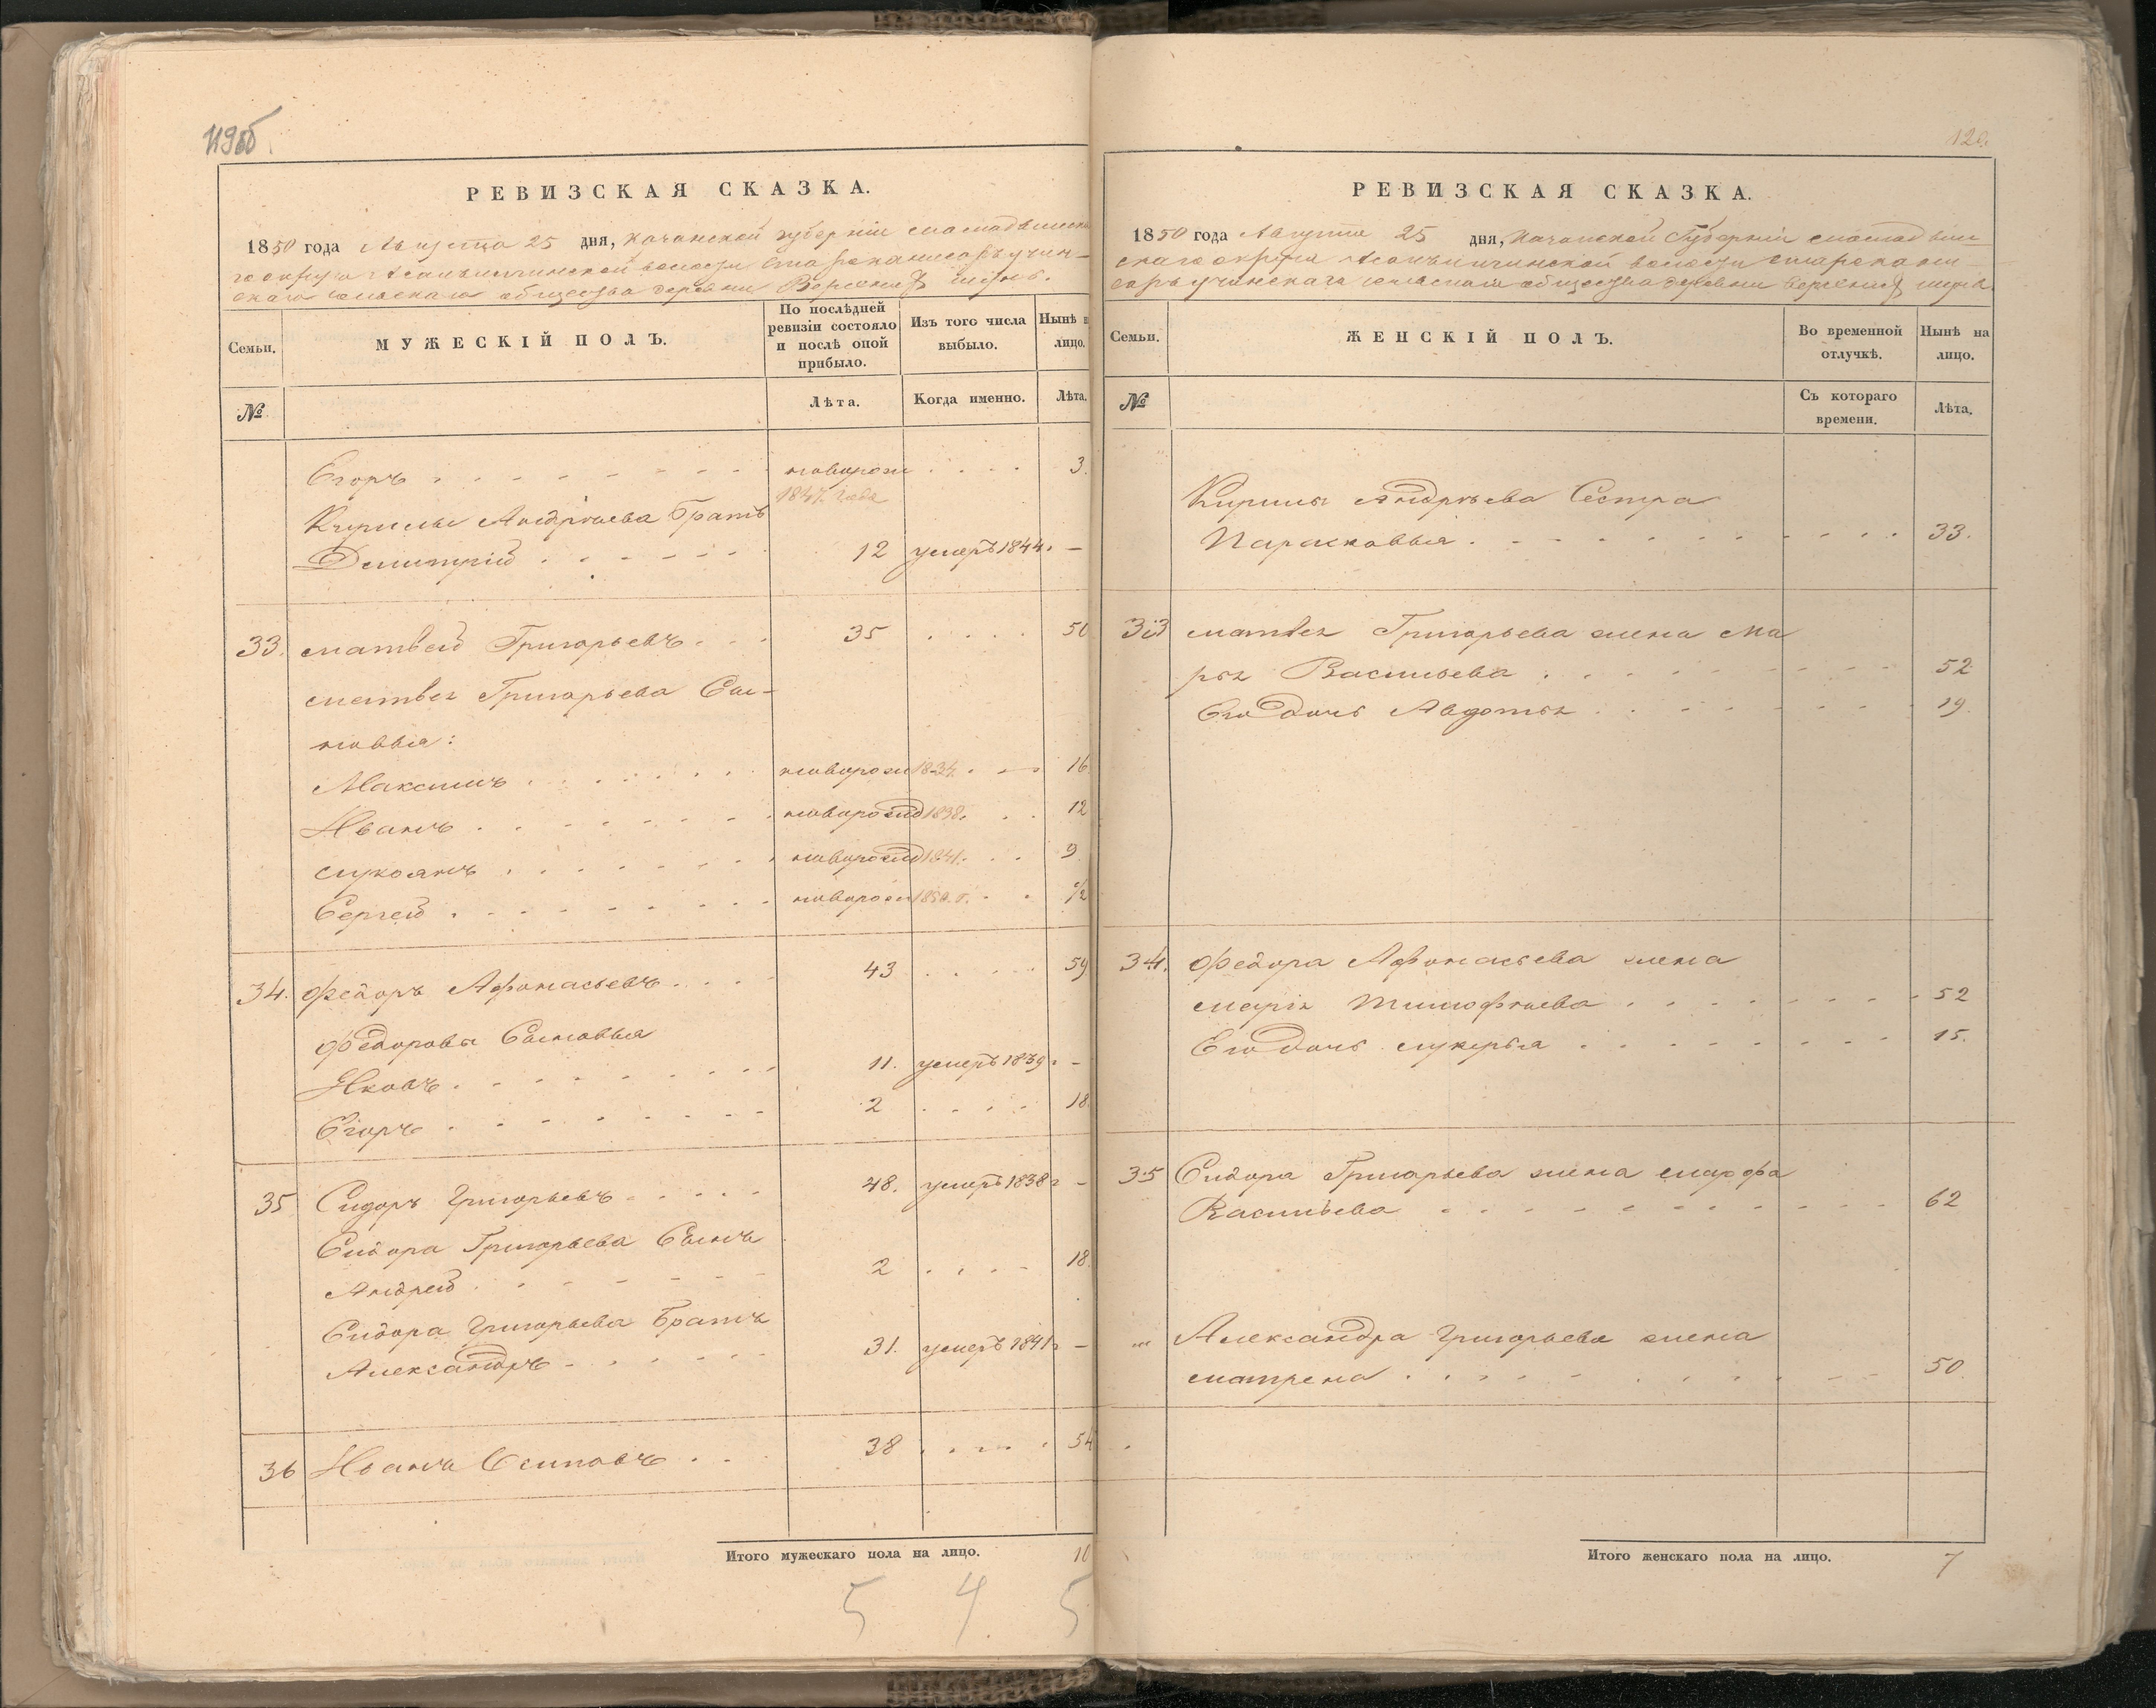 119об
РЕВИЗСКАЯ СКАЗКА.
1850 года Августа 25 дня, Казанской губерніи
волости
скаго сельскаго общества деревни
Семьи.
МУЖЕСКІЙ ПОЛЪ.
По послѣдней ревизіи состояло и послѣ оной прибыло.
Изъ того числа выбыло.
Нынѣ н лицо.
№
Лѣта.
Когда именно.
Лѣта.
Егоръ новорож 3.
1847 года
Кирилы Андрѣева Братъ
Дмитрій 12 умеръ 1844. —
33. Матвей Григорьевъ 35 50
Матвея Григорьева Сы-
новья:
Максимъ новорож 1834. 16
Иванъ новорожд 1838. 12
Лукоянъ новорожд 1841. 9
Сергей новорож 1850. г. ½
34. Федоръ Афонасьевъ 43 59
Федоровы Сыновья
Яковъ 11. умеръ 1839 г —
Егоръ 2 18.
35 Сидоръ Григорьевъ 48. умеръ 1838 г —
Сидора Григорьева Сынъ
Андрей 2 18.
Сидора Григорьева Братъ
Александръ 31. умеръ 1841 г —
36 Иванъ Осиповъ 38 54
Итого мужескаго пола на лицо. 10
5 4 5
120.
РЕВИЗСКАЯ СКАЗКА.
1850 года Августа 25 дня, Казанской Губерніи
скаго округа волости
сельскаго общества деревни
Семьи.
ЖЕНСКІЙ ПОЛЪ.
Во временной отлучкѣ.
Нынѣ на лицо.
№
Съ котораго времени.
Лѣта.
Кирилы Андрѣева Сестра
Парасковья 33.
33 Матвея Григорьева жена Ма
рья Васильева 52
Его дочь Авдотья 19.
34. Федора Афонасьева жена
Марья Тимофѣева 52
Его дочь Лукерья 15.
35 Сидора Григорьева жена Марфа
Васильева 62
Александра Григорьева жена
Матрена 50.
Итого женскаго пола на лицо. 7